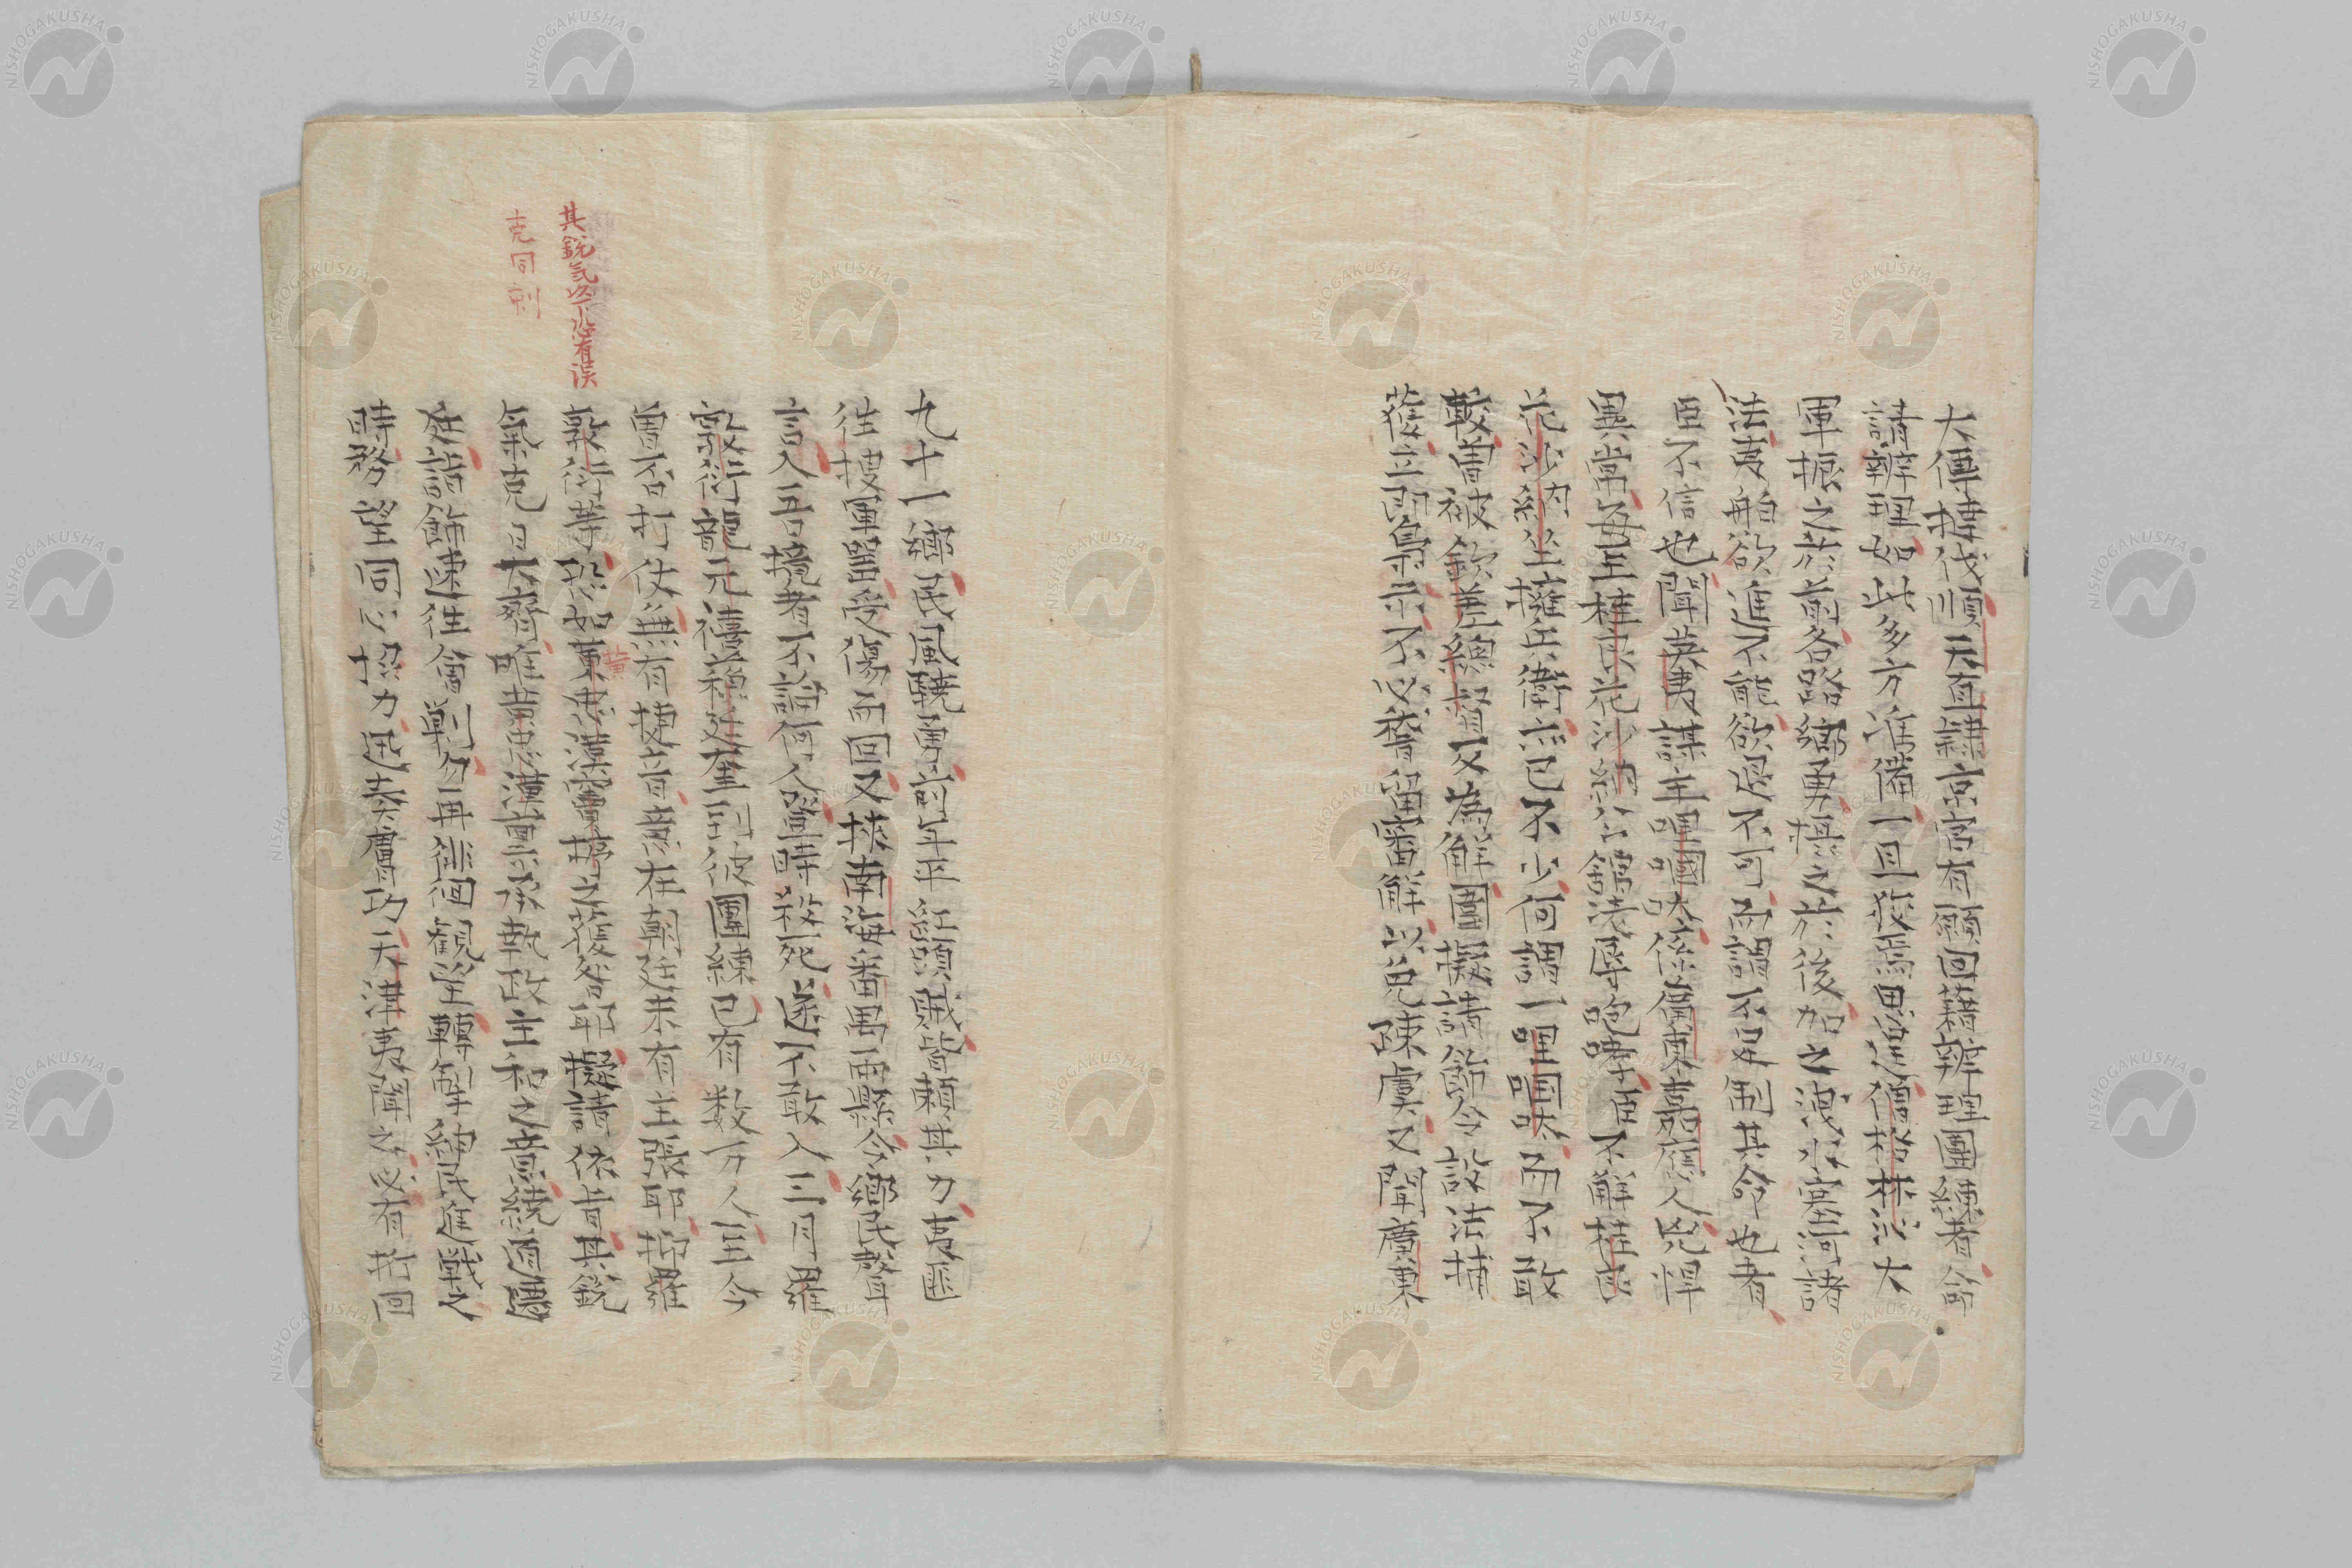 大傅撫伐順天直隷京官有願回藉辦理團練者飭
請辦理如此多方准備一旦我馬思逞僧格林沁大
軍振之於前各路鄉勇擾之於後加之淺水塞河諸
法夷船欲進不能欲退不可所謂不足制其命也者
臣不信也聞英夷謀主哩國吠係廣東嘉應人兇悍
異常毎至桂良花沙納公舘洗辱咆哮臣不解桂良
花沙納坐擁兵衛亦已不少何謂一哩国吠而不敢
較曽被欽差總督又為解圍擬請飭令設法捕
獲立即梟示不必稽留審解以洩陳虞又聞廣東
九十一鄉民風驍勇前年平紅頭賊皆頼其力夷匪
往擾軍器受傷而回又挟南海番禺両縣令鄉民聲
言入吾境者不論何人登時殺死遂不敢入三月羅
惇衍龍元禧蘇廷魁到彼團練已有数万人至今
曽否打仗無有捷音意在朝廷未有主張耶抑羅
惇衍等恐如黄忠漢宗漢之獲咎耶擬請依昔其鋭
氣克日大齊唯黄宗漢素承執政主和之意繞道遷
延請飭速往會剿勿再徘徊観望轉解紳民進戰之
時務望同心協力迅奏膚功天津夷聞之必有折回
其鋭気此下恐有誤
克同剋
黄
NISHOGAKUSHA